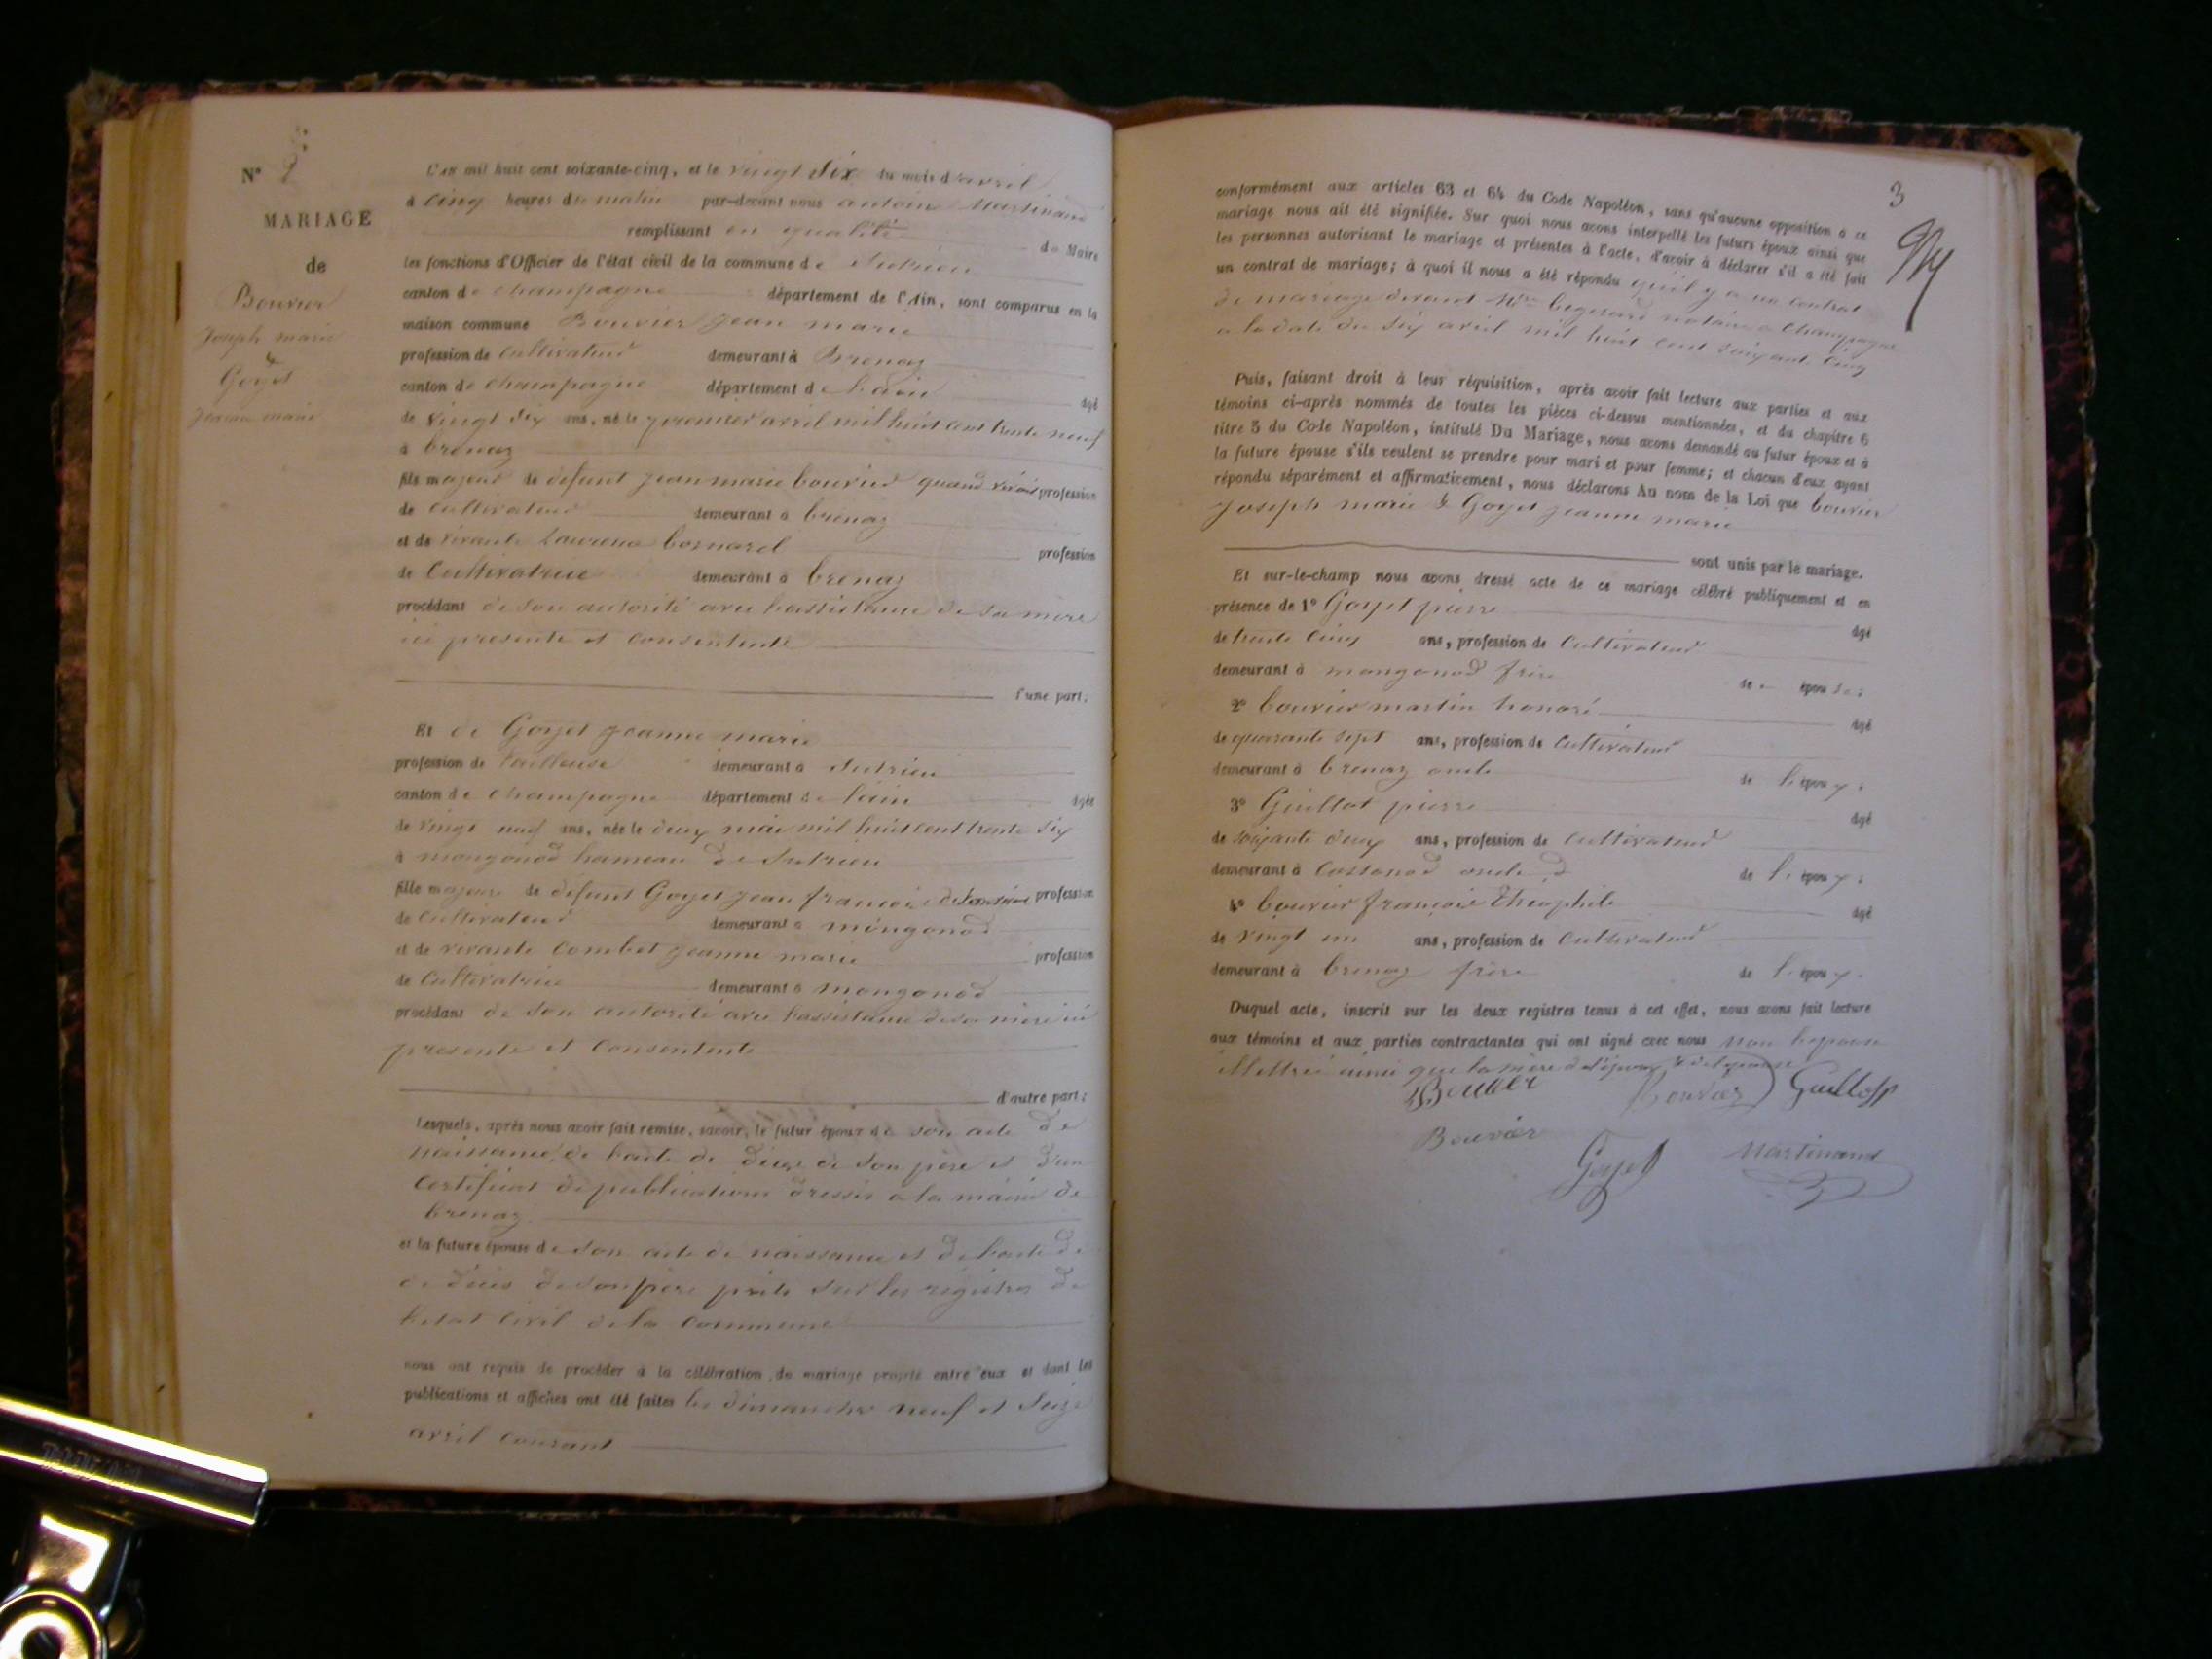 N° 2
MARIAGE
de
Bouvier
Joseph marie
&
Goyet
Jeanne marie
L'an mil huit cent soixante-cinq, et le vingt six du mois d'avril
à cinq heures du matin par-devant nous antoine Martinand
remplissant en qualité de Maire
les fonctions d'Officier de l'état civil de la commune de Sutrieu
canton de champagne département de l'Ain, sont comparus en la
maison commune Bouvier jean marie
profession de Cultivateur demeurant à Brenaz
canton de champagne département de l'ain âgé
de vingt six ans, né le premier avril mil huit cent trente neuf
à brenaz
fils majeur de défunt jean marie bouvier quand vivait profession
de cultivateur demeurant à brenaz
et de vivante Laurence bornarel profession
de Cultivatrice demeurant à brenaz
procédant de son autorité avec lassistance de sa mere
ici presente et consentente
d'une part;
Et de Goyet jeanne marie
profession de tailleuse demeurant à Sutrieu
canton de champagne département de lain âgée
de vingt neuf ans, née le deux mai mil huit cent trente six
à mongonod hameau de Sutrieu
fille majeure de défunt Goyet jean francois profession
de cultivateur demeurant à mongonod
et de vivante Combet jeanne marie profession
de Cultivatrice demeurant à mongonod
procédant de son autorité avec lassistance de sa mere ici
presente et Consentente
d'autre part;
Lesquels, après nous avoir fait remise, savoir, le futur époux de son acte de
naissance, de lacte de déces de son père et d'un
certificat de publications dressés a la mairie de
brenaz
et la future épouse de son acte de naissance et de lacte de
de déces de son père pris sur les registres de
létat Civil de la Commune
nous ont requis de procéder à la célébration du mariage projeté entre eux et dont les
publications et affiches ont été faites les dimanches neuf et Seize
avril courant
3
conformément aux articles 63 et 64 du Code Napoléon, sans qu'aucune opposition à ce
mariage nous ait été signifiée. Sur quoi nous avons interpellé les futurs époux ainsi que
les personnes autorisant le mariage et présentes à l'acte, d'avoir à déclarer s'il a été fait
un contrat de mariage; à quoi il nous a été répondu quil y a un contrat
de mariage devant notaire a Champagne
a la date du six avril mil huit cent soixante Cinq
Puis, faisant droit à leur réquisition, après avoir fait lecture aux parties et aux
témoins ci-après nommés de toutes les pièces ci-dessus mentionnées, et du chapitre 6
titre 5 du Code Napoléon, intitulé Du Mariage, nous avons demandé au futur époux et à
la future épouse s'ils veulent se prendre pour mari et pour femme; et chacun d'eux ayant
répondu séparément et affirmativement, nous déclarons Au nom de la Loi que bouvier
joseph marie & Goyet jeanne marie
sont unis par le mariage.
Et sur-le-champ nous avons dressé acte de ce mariage célébré publiquement et en
présence de 1° Goyet pierre âgé
de trente Cinq ans, profession de Cultivateur
demeurant à mongonod frère de épouse;
2° bouvier martin honoré âgé
de quarante sept ans, profession de Cultivateur
demeurant à brenaz oncle de l'époux;
3° Guillot pierre âgé
de soixante deux ans, profession de cultivateur
demeurant à oncle de l'époux;
4° bouvier françois Théophile âgé
de vingt un ans, profession de Cultivateur
demeurant à brenaz frère de l'époux.
Duquel acte, inscrit sur les deux registres tenus à cet effet, nous avons fait lecture
aux témoins et aux parties contractantes qui ont signé avec nous non lepouse
illettrée ainsi que la mère de lepoux & de lepouse
Bouvier Bouvier Guillot
Bouvier
Goyet Martinand